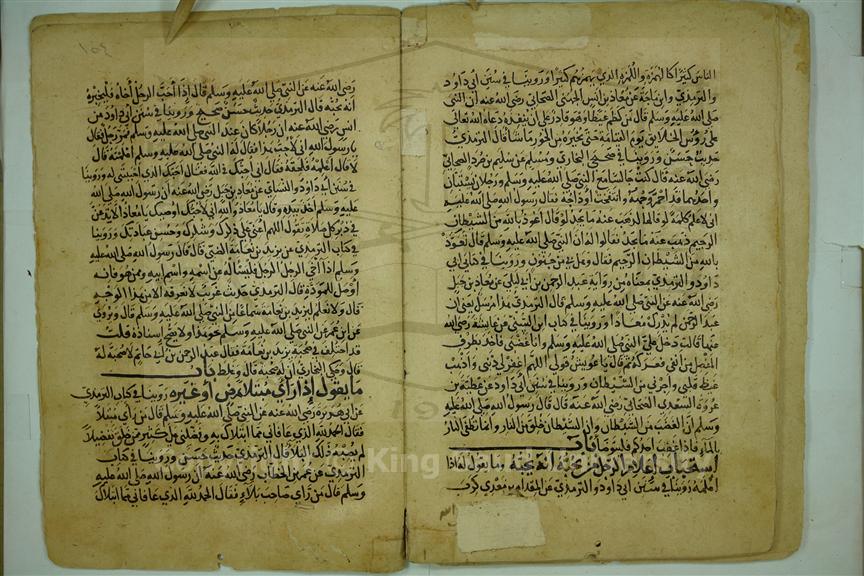 الناس كثيرا كالهمزة واللمزة الذي يهمزهم كثيرا وروينا في سنن ابي داود
والترمذي وابن ماجة عن معاذ بن انس الجهني الصحابي رضي الله عنه أن النبي
صلى الله عليه وسلم قال من كظم غيظا وهو قادر على أن ينفذه دعاه الله تعالى
على رؤس الخلائق يوم القيامة حتى يخيره من الحور ما شا قال الترمذي
حديث حسن وروينا في صحيحي البخاري ومسلم عن سليمن بن صرد الصحابي
رضي الله عنه قال كنت جالسا مع النبي صلى الله عليه وسلم ورجلان يستبان
واحدهما قد احمر وجهه وانتفخت اوداجه فقال رسول الله صلى الله عليه وسلم
اني لاعلم كلمة لو قالها لذهب عنه ما يجد لو قال أعوذ بالله من الشيطان
الرجيم ذهب عنه ما يجد فقالوا له ان النبي صلى الله عليه وسلم قال تعوذ
بالله من الشيطان الرجيم فقال وهل بي من جنون وروينا في كتابي ابي
داود والترمذي معناه من رواية عبد الرحمن بن ابي ليلى عن معاذ بن جبل
رضي الله عنه عن النبي صلى الله عليه وسلم قال الترمذي هذا مرسل يعني أن
عبد الرحمن لم يدرك معاذا وروينا في كتاب ابن السني عن عايشة رضي الله
عنها قالت دخل علي النبي صلى الله عليه وسلم وانا غضبى فأخذ بطرف
المفصل من انفي فعركه ثم قال يا عويش قولي اللهم اغفر لي ذنبي واذهب
غيظ قلبي واجرني من الشيطان وروينا في سنن أبي داود عن عطية بن
عروة السعدي الصحابي رضي الله عنه قال قال رسول الله صلى الله عليه
وسلم ان الغضب من الشيطان وان الشيطان خلق من النار وانما تطفى النار
بالماء فاذا غضب احدكم فليتوضا باب
استحباب إعلام الرجل من يحبه أنه يحبه وما يقول له اذا
اعلمه روينا في سنن ابي داود والترمذي عن المقدام بن معدي كرب
١٥٤
رضي الله عنه عن النبي صلى الله عليه وسلم قال إذا أحب الرجل أخاه فليخبره
أنه يحبه قال الترمذي حديث حسن صحيح وروينا في سنن ابي داود عن
انس رضي الله عنه ان رجلا كان عند النبي صلى الله عليه وسلم فمر رجل فقال
يا رسول الله اني لأحب هذا فقال له النبي صلى الله عليه وسلم أعلمته قال
لا قال أعلمه فلحقه فقال اني أحبك في الله فقال أحبك الذي أحببتني له وروينا
في سنن ابي داود والنساي عن معاذ بن جبل رضي الله عنه ان رسول الله صلى الله
عليه وسلم أخذ بيده وقال يا معاذ والله اني لاحبك اوصيك يا معاذ لا تدعن
في دبر كل صلاة تقول اللهم أعني على ذكرك وشكرك وحسن عبادتك وروينا
في كتاب الترمذي عن يزيد بن نعامة الضبي قال قال رسول الله صلى الله عليه
وسلم اذا آخى الرجل الرجل فليسأله عن اسمه واسم ابيه وممن هو فانه
أوصل للمودة قال الترمذي حديث غريب لا نعرفه الا من هذا الوجه
قال ولا نعلم ليزيد بن نعامة سماعا من النبي صلى الله عليه وسلم قال ويروى
عن ابن عمر عن النبي صلى الله عليه وسلم نحو هذا ولا يصح إسناده قلت
قد اختلف في صحبة يزيد بن نعامة فقال عبد الرحمن بن ابي حاتم لا صحبة له
قال وحكى البخاري أن له صحبة قال وغلط باب
ما يقول إذا رأى مبتلا بمرض أو غيره روينا في كتاب الترمذي
عن ابي هريرة رضي الله عنه عن النبي صلى الله عليه وسلم قال من راى مبتلا
فقال الحمد لله الذي عافاني مما ابتلاك به وفضلني على كثير ممن خلق تفضيلا
لم يصبه ذلك البلا قال الترمذي حديث حسن وروينا في كتاب
الترمذي عن عمر بن الخطاب رضي الله عنه أن رسول الله صلى الله عليه
وسلم قال من راى صاحب بلاء فقال الحمد لله الذي عافاني مما ابتلاك